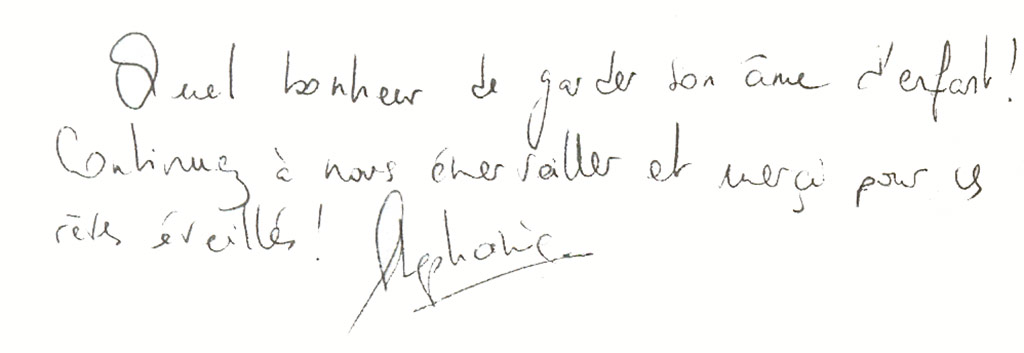 Quel bonheur de garder son âme d'enfant !
Continuez à nous émerveiller et merçi pour ces
rêves éveillés !